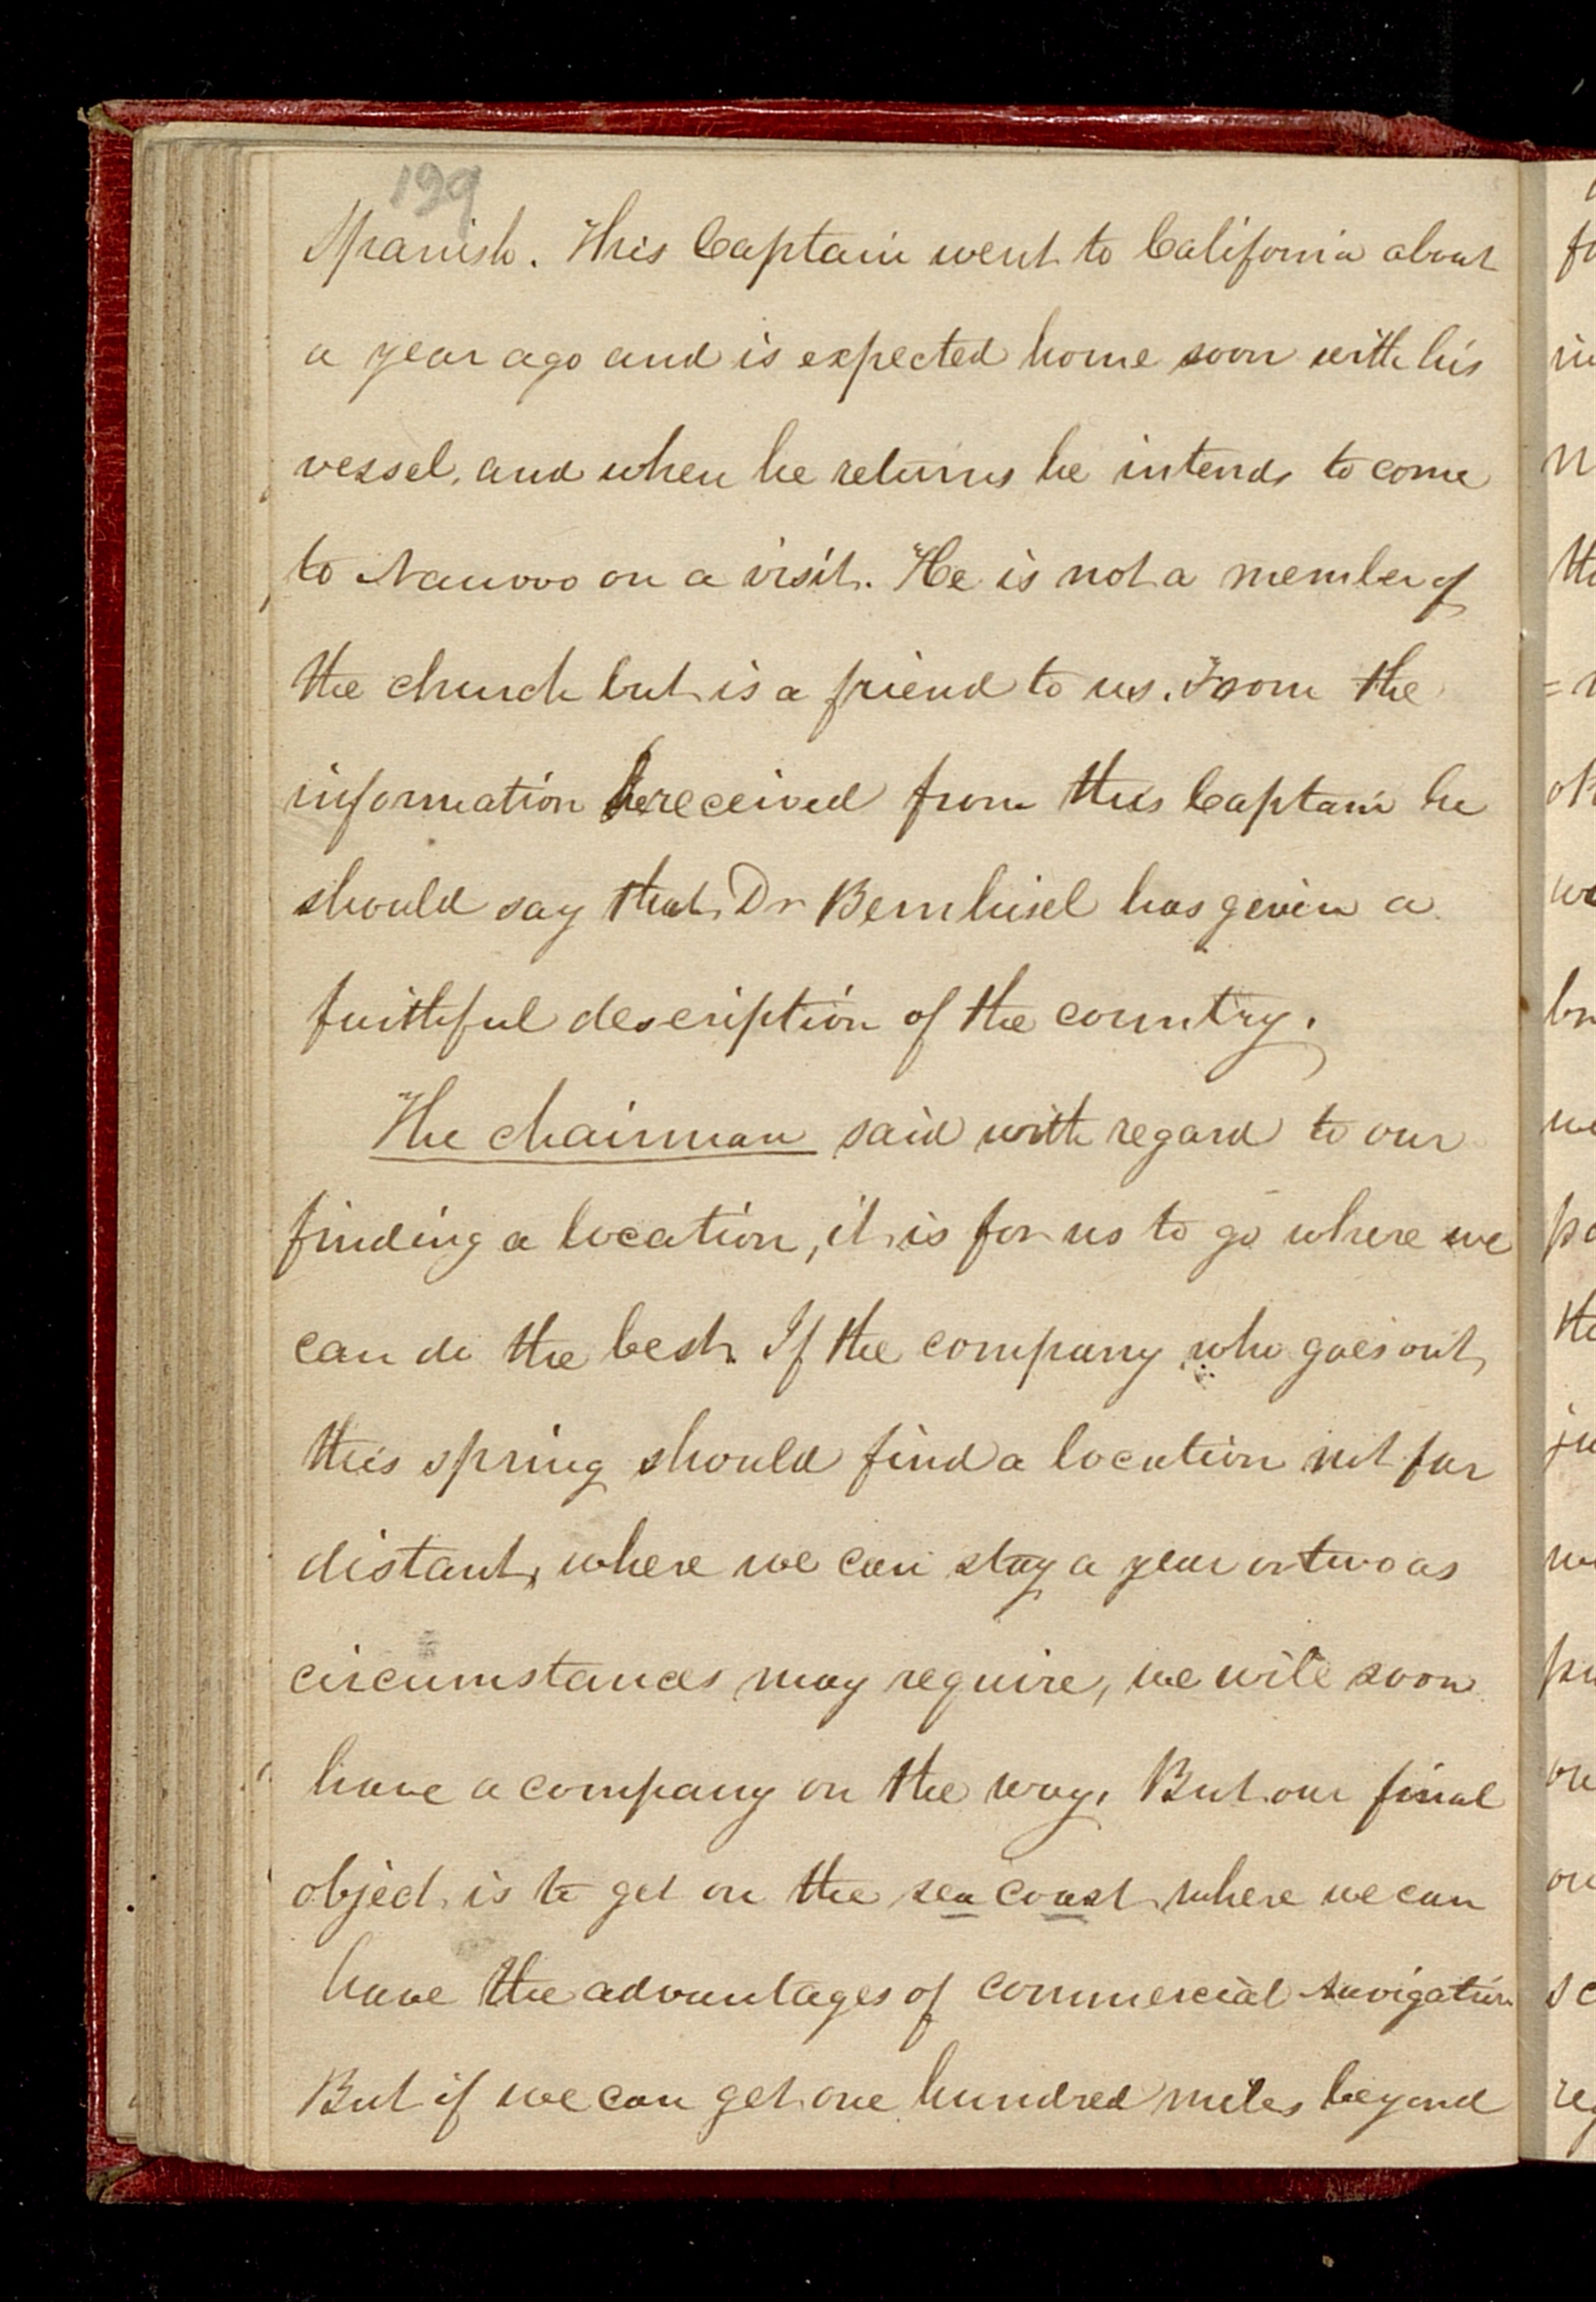 199
Spanish. This Captain went to California about
a year ago and is expected home soon with his
vessel, and when he returns he intends to come
to Nauvoo on a visit. He is not a member of
the church but is a friend to us. From the
information he received from this Captain he
should say that Dr Bernhisel has given a
faithful description of the country.
The chairman said with regard to our
finding a location, it is for us to go where we
can do the best. If the company who goes out
this spring should find a location not far
distant, where we can stay a year or two as
circumstances may require, we will soon
have a company on the way, But our final
object is to get on the sea coast where we can
have the advantages of commercial navigation
But if we can get one hundred miles beyond